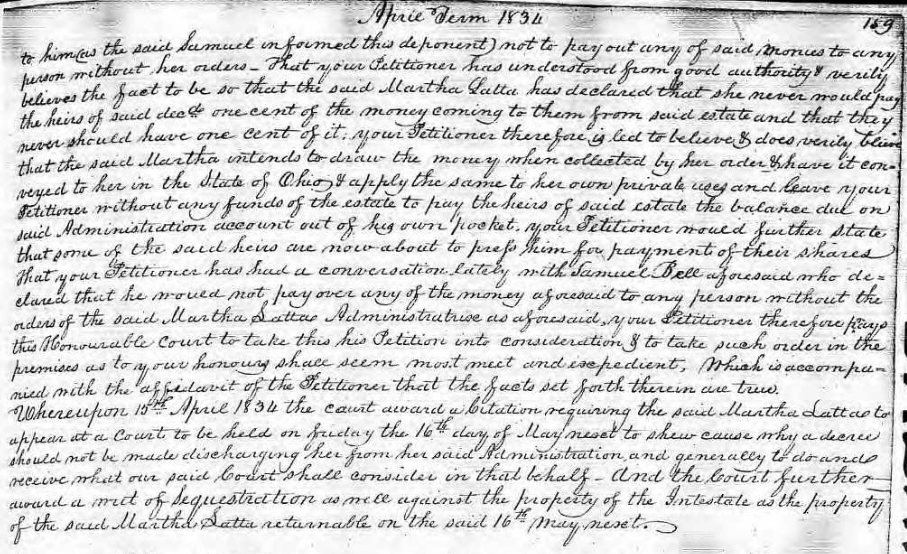 April Term 1834
159
to him (as the said Samuel informed this deponent) not to pay out any of said monies to any
person without her orders - That your Petitioner has understood from good authority & verily
believes the fact to be so that the said Martha Latta has declared that she never would pay
the heirs of said decd. one cent of the money coming to them from said estate and that they
never should have one cent of it; your Petitioner therefore is led to believe & does verily believe
that the said Martha intends to draw the money when collected by her order & have it con=
veyed to her in the State of Ohio & apply the same to her own private uses and leave your
Petitioner without any funds of the estate to pay the heirs of said estate the balance due on
said Administration account out of his own pocket. your Petitioner would further state
that some of the said heirs are now about to press him for payment of their shares
That your Petitioner has had a conversation lately with Samuel Bell aforesaid who de=
clared that he would not pay over any of the money aforesaid to any person without the
orders of the said Martha Latta Administratrix as aforesaid. your Petitioner therefore prays
this Honourable Court to take this his Petition into consideration & to take such order in the
premises as to your honours shall seem most meet and expedient. Which is accompa=
nied with the affidavit of the Petitioner that the facts set forth therein are true.
Whereupon 15th April 1834 the court award a Citation requiring the said Martha Latta to
appear at a Court to be held on friday the 16th day of May next to shew cause why a decree
should not be made discharging her from her said Administration and generally to do and
receive what our said Court shall consider in that behalf - And the Court further
award a writ of sequestration as well against the property of the Intestate as the property
of the said Martha Latta returnable on the said 16th May next.